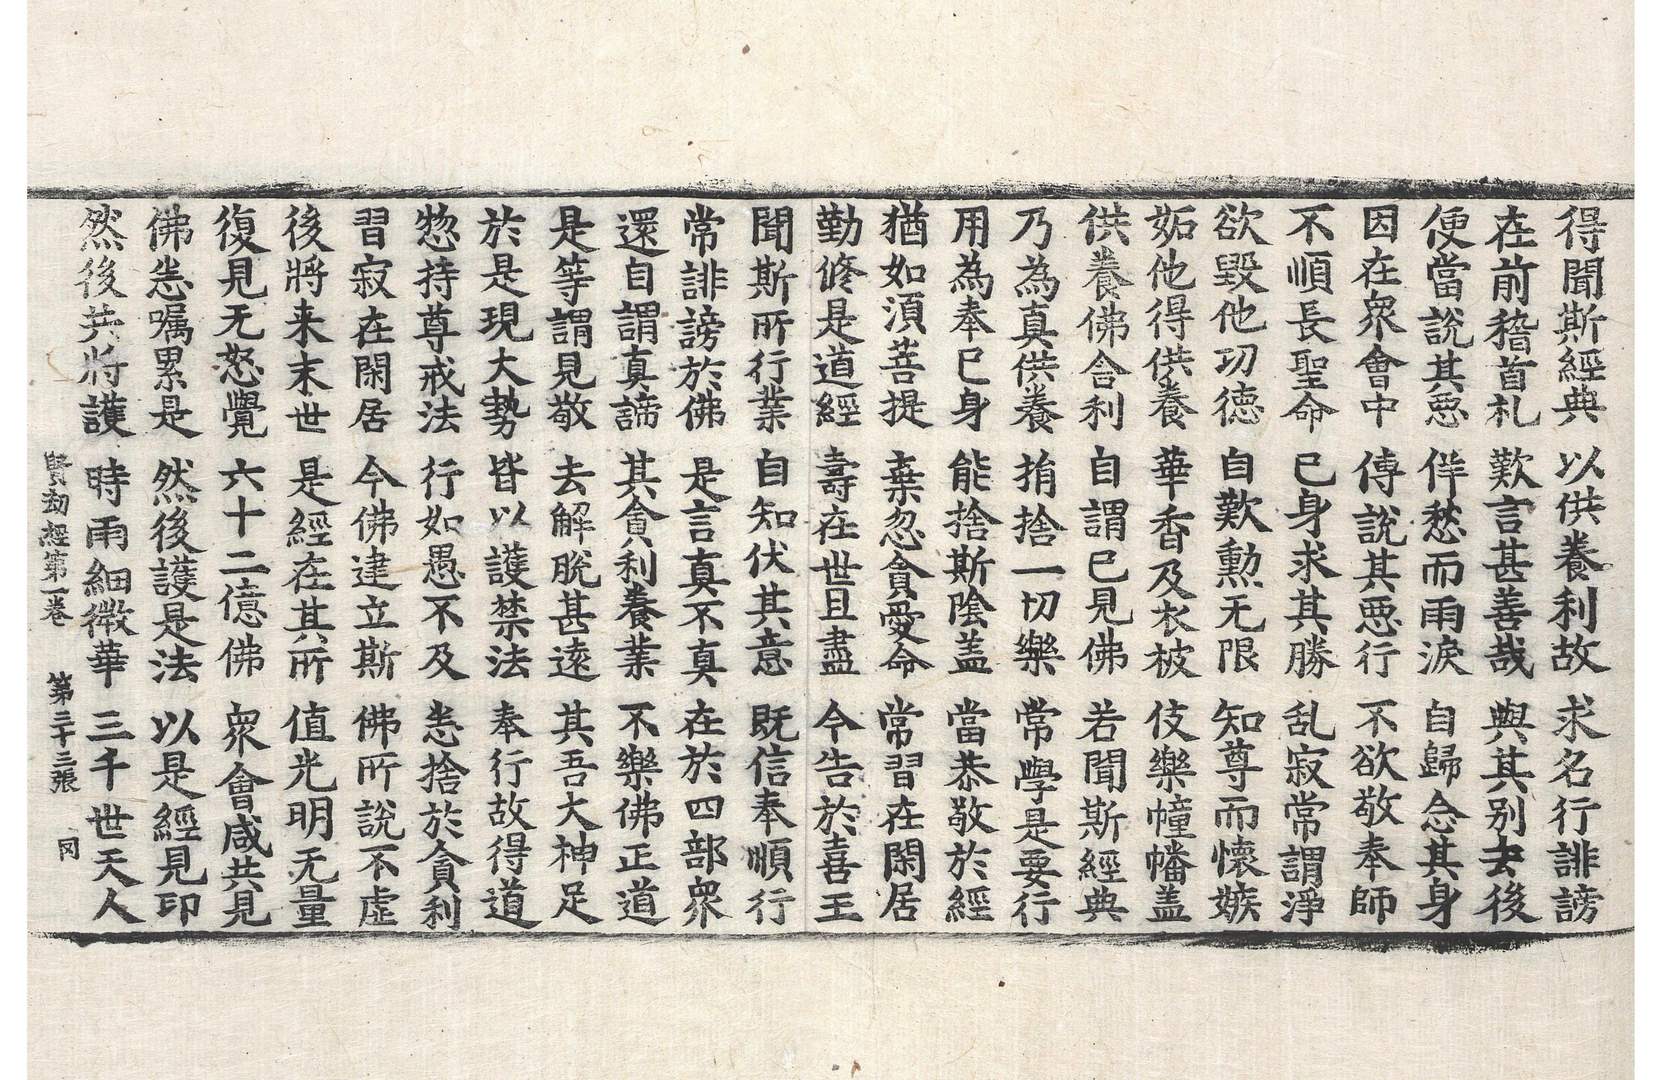 得聞斯經典 以供養利故 求名行誹謗
在前稽首礼 歎言甚善哉 與其別去後
便當說其惡 佯愁而雨淚 自歸念其身
因在衆會中 傳說其惡行 不欲敬奉師
不順長聖命 已身求其勝 乱寂常謂淨
欲毀他功德 自歎勳无限 知尊而懷嫉
妬他得供養 華香及衣被 伎樂幢幡盖
供養佛舎利 自謂已見佛 若聞斯經典
乃為真供養 捐捨一切樂 常學是要行
用為奉已身 能捨斯陰盖 當恭敬於經
猶如湏菩提 棄忽貪愛命 常習在閑居
勤修是道經 壽在世且盡 今告於喜王
聞斯所行業 自知伏其意 既信奉順行
常誹謗於佛 是言真不真 在於四部衆
還自謂真諦 其貪利養業 不樂佛正道
是等謂見敬 去解脫甚遠 其吾大神足
於是現大勢 皆以護禁法 奉行故得道
惣持尊戒法 行如愚不及 恙捨於貪利
習寂在閑居 今佛建立斯 佛所說不虛
後將来末世 是經在其所 值光明无量
復見无怒覺 六十二億佛 衆會咸共見
佛恙嘱累是 然後護是法 以是經見印
然後共將護 時雨細微華 三千世天人
賢劫經第一卷 第三十三張 罔